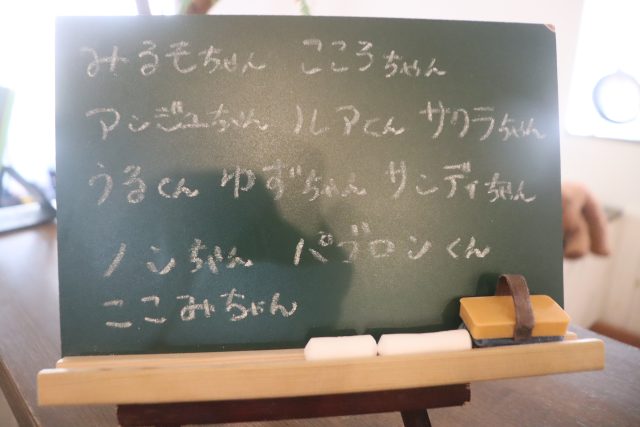 みるモちゃん こころちゃん
アンジュちゃん ルアくん サクラちゃん
うるくん ゆずちゃん サンディちゃん
ノンちゃん パブロンくん
ここみちゃん